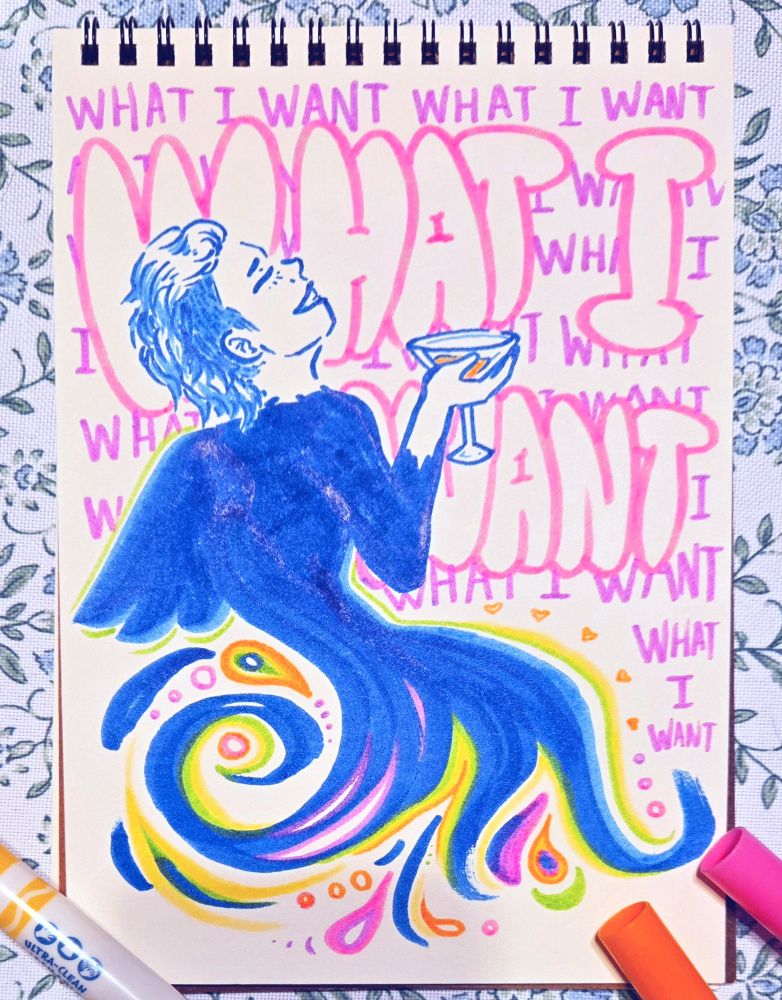 WHAT I WANT WHAT I WANT
WHAT I
I
I
I I WHAT
I WANT
WANT
I
WHAT I WANT
WHAT
I
WANT
ULTRA-CLEAN